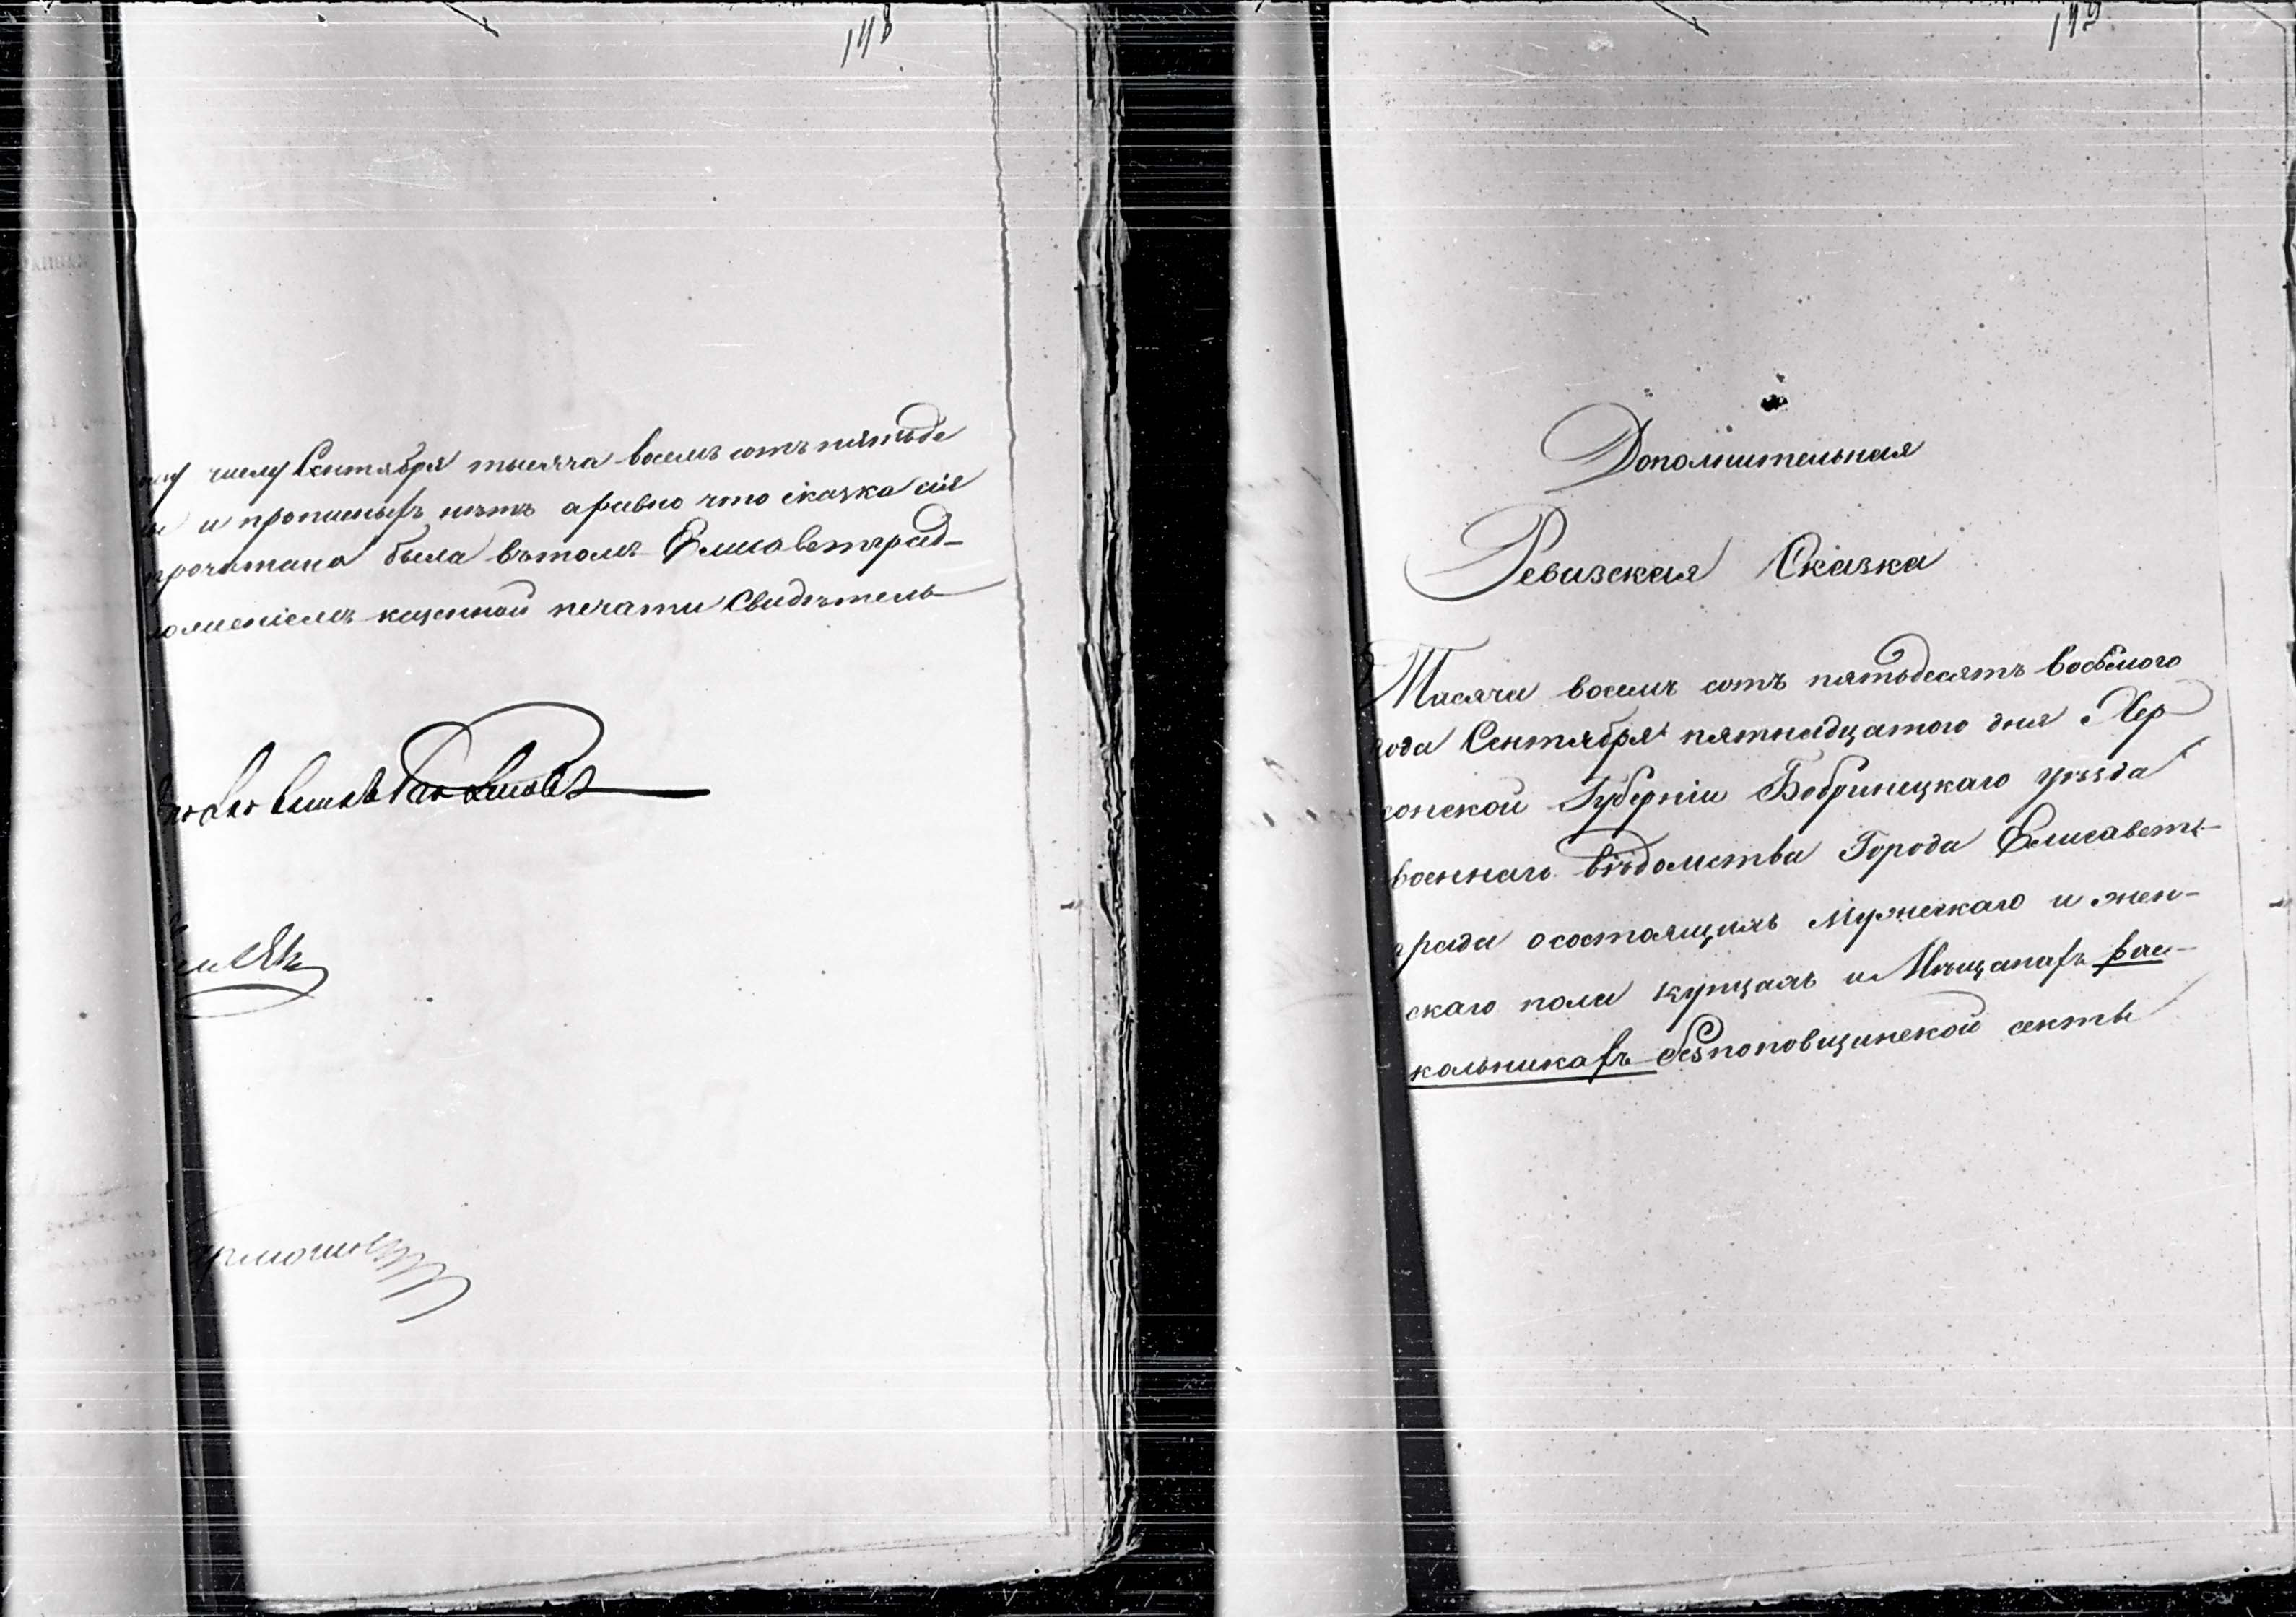 148
числу Сентября тысяча восемь сотъ пятьде
и прописныхъ нѣтъ а равно что сказка сія
прочитана была въ томъ Елисаветград-
ложеніемъ казенной печати свидѣтель-
149
Дополнительная
Ревизская Сказка
Тысяча восемь сотъ пятьдесятъ восьмого
года Сентября пятнадцатого дня Хер
сонской Губерніи Бобринецкаго уѣзда
военнаго вѣдомства Города Елисавет-
града о состоящихъ мужескаго и жен-
скаго пола купцахъ и Мѣщанахъ рас-
кольникахъ безпоповщинской секты